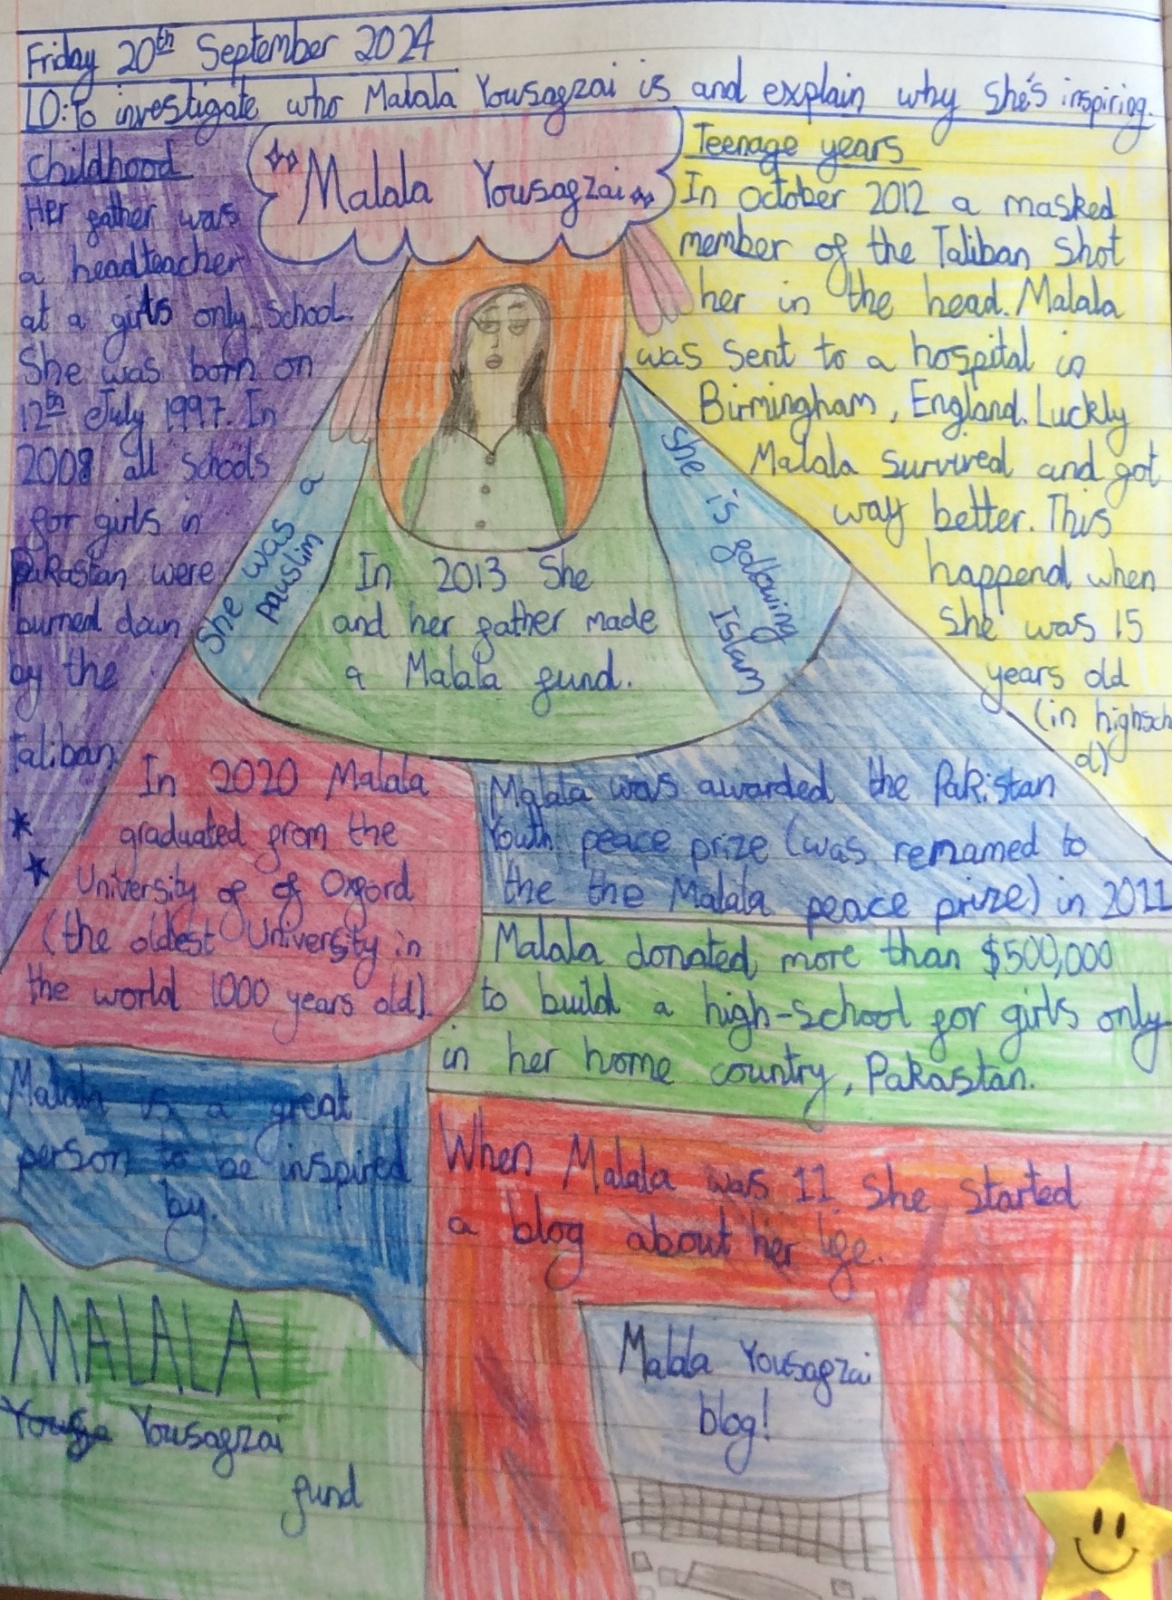 Friday 20th September 2024
LO: To investigate who Malala Yousafzai is and explain why she's inspiring.
Malala Yousafzai
Childhood
Her father was
a headteacher
at a girls only school.
She was born on
12th July 1997. In
2008 all schools
for girls in
Pakastan were
burned down
by the
taliban.
Teenage years
In October 2012 a masked
member of the Taliban shot
her in the head. Malala
was sent to a hospital in
Birmingham, England. Luckly
Malala survived and got
way better. This
happend when
she was 15
years old
(in highsch
ol)
She was a
muslim
She is following
Islam
In 2013 She
and her father made
a Malala fund.
In 2020 Malala
graduated from the
University of of Oxford
(the oldest University in
the world 1000 years old).
Malala was awarded the Pakistan
Youth peace prize (was renamed to
the the Malala peace prize) in 2011
Malala donated more than $500,000
to build a high-school for girls only
in her home country, Pakastan.
Malala is a great
person to be inspired
by.
When Malala was 11 she started
a blog about her life.
Malala Yousafzai
blog!
MALALA
Yousafzai
fund